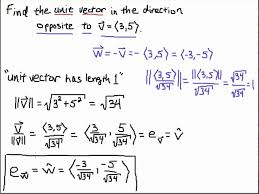 Find the unit vector in the direction
opposite to v⃗ = ⟨3,5⟩.
w⃗ = -v⃗ = -⟨3,5⟩ = ⟨-3,-5⟩
"unit vector has length 1"
‖⟨3,5⟩/√34‖ = ‖⟨3,5⟩‖/√34 = √34/√34 = 1
‖v⃗‖ = √(3²+5²) = √34
v⃗/‖v⃗‖ = ⟨3,5⟩/√34 = ⟨3/√34, 5/√34⟩ = e_v⃗ = v̂
e_w⃗ = ŵ = ⟨-3/√34, -5/√34⟩